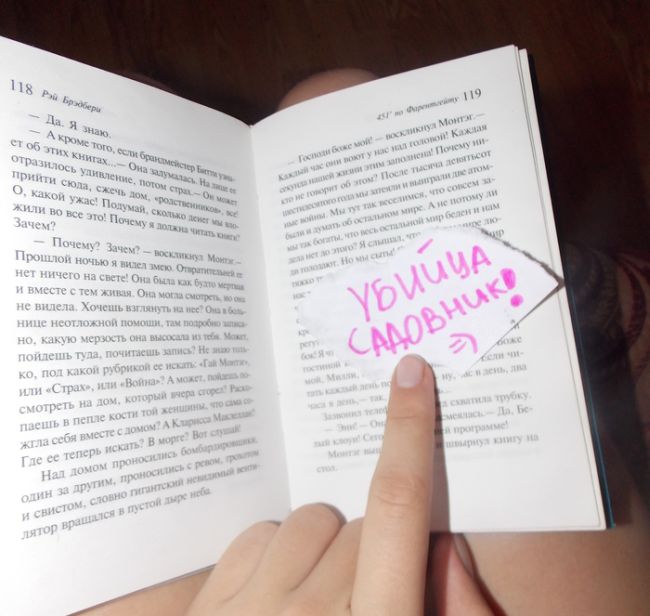 118 Рэй Брэдбери
— Да. Я знаю.
— А кроме того, если брандмейстер Битти узна-
ет об этих книгах...— Она задумалась. На лице ее
отразилось удивление, потом страх.— Он может
прийти сюда, сжечь дом, «родственников», все!
О, какой ужас! Подумай, сколько денег мы вло-
жили во все это! Почему я должна читать книги?
Зачем?
— Почему? Зачем? — воскликнул Монтэг.—
Прошлой ночью я видел змею. Отвратительней ее
нет ничего на свете! Она была как будто мертвая
и вместе с тем живая. Она могла смотреть, но она
не видела. Хочешь взглянуть на нее? Она в боль-
нице неотложной помощи, там подробно записа-
но, какую мерзость она высосала из тебя. Может,
пойдешь туда, почитаешь запись? Не знаю толь-
ко, под какой рубрикой ее искать: «Гай Монтэг»,
или «Страх», или «Война»? А может, пойдешь по-
смотреть на дом, который вчера сгорел? Раско-
паешь в пепле кости той женщины, что сама со-
жгла себя вместе с домом? А Кларисса Маклеллан?
Где ее теперь искать? В морге? Вот слушай!
Над домом проносились бомбардировщики,
один за другим, проносились с ревом, грохотом
и свистом, словно гигантский невидимый венти-
лятор вращался в пустой дыре неба.
451° по Фаренгейту 119
— Господи боже мой! — воскликнул Монтэг.—
Каждый час они воют у нас над головой! Каждая
секунда нашей жизни этим заполнена! Почему ни-
кто не говорит об этом? После тысяча девятьсот
шестидесятого года мы затеяли и выиграли две атом-
ные войны. Мы тут так веселимся, что совсем за-
были и думать об остальном мире. А не потому ли
мы так богаты, что весь остальной мир беден и нам
дела нет до этого? Я слышал,
да голодают. Но мы сыты!
тяжко
УБИЙЦА
САДОВНИК!
=)
бок! Я
гостиной
мой, Милли, Если чи-
тать каждый день час в день, два
часа в день,— так,
Зазвонил схватила трубку.
— Энн! — Она Да, Бе-
лый клоун! программе!
Монтэг швырнул книгу на
стол.